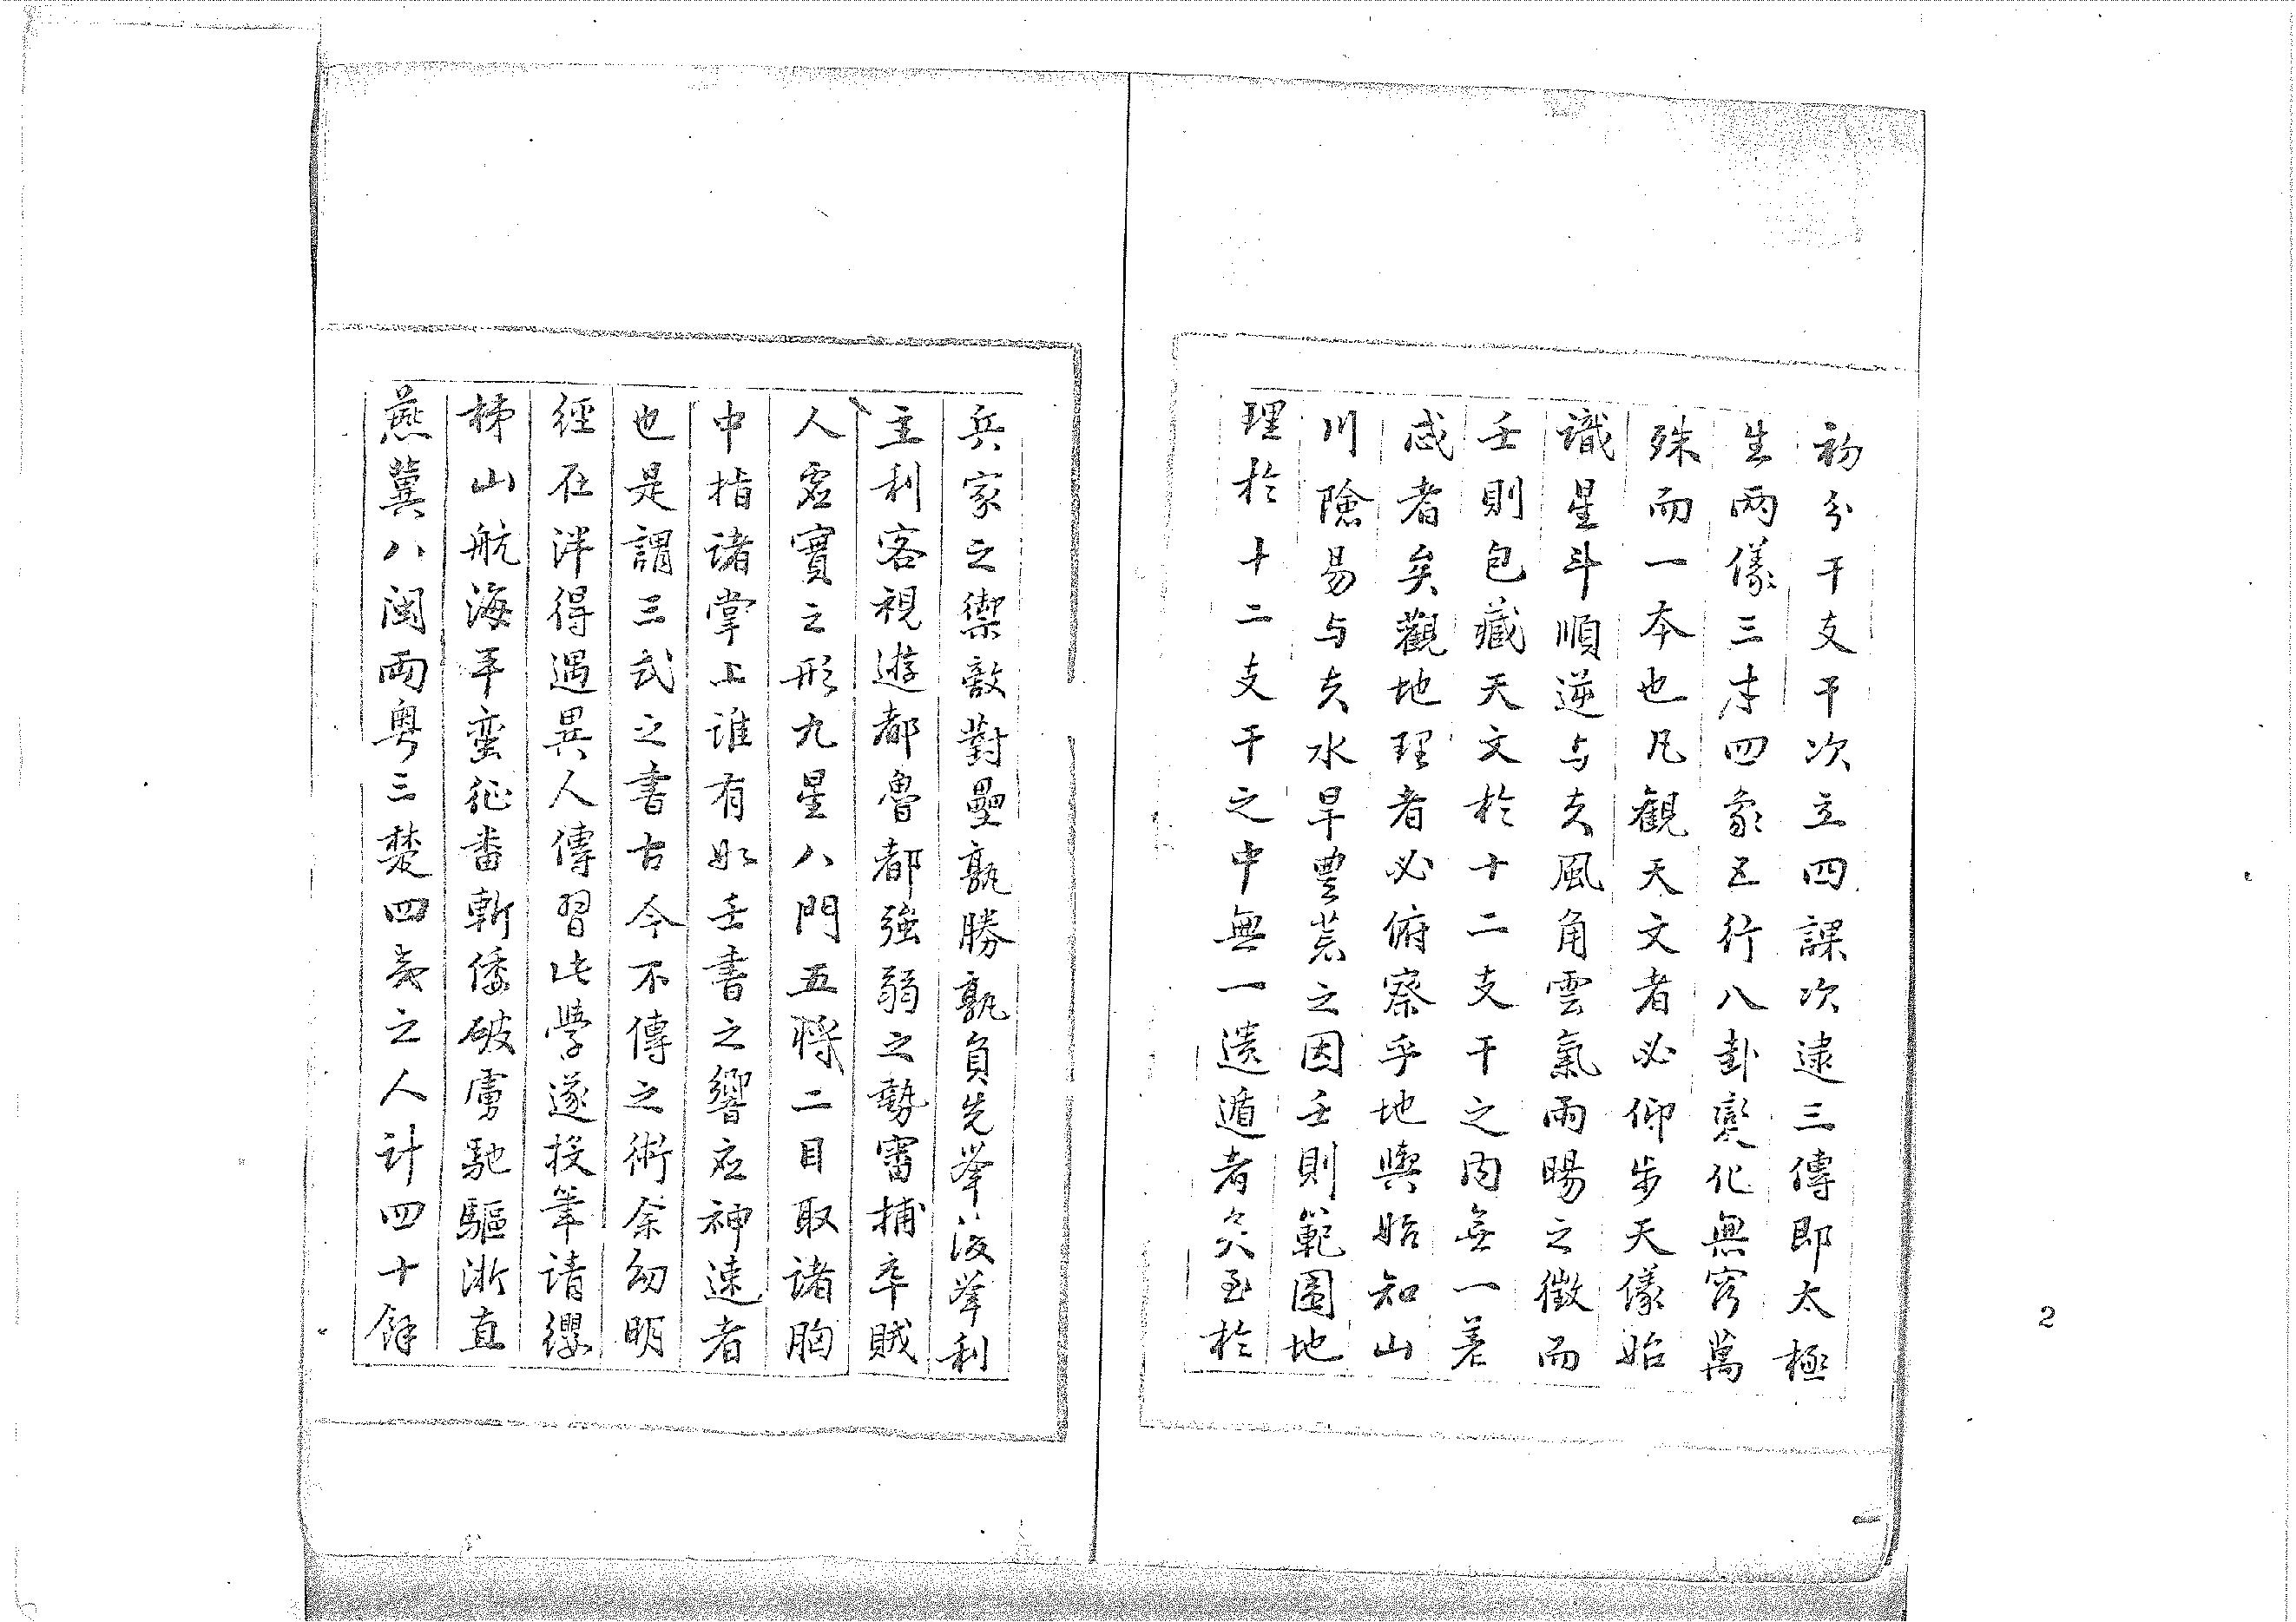 初分干支干次立四課次逮三傳即太極
生两儀三才四象五行八卦變化無窮萬
殊而一本也凡觀天文者必仰步天儀始
識星斗順逆与夫風角雲氣雨暘之徵而
壬則包藏天文於十二支干之内無一差
忒者矣觀地理者必俯察乎地輿始知山
川險易与夫水旱豊荒之因壬則範圍地
理於十二支干之中無一遗遁者矣至於
兵家之禦敵對壘孰勝孰負先举後举利
主利客視遊都魯都強弱之勢審捕卒賊
人虚實之形九星八門五將二目取诸胸
中指诸掌上谁有如壬書之響应神速者
也是謂三式之書古今不傳之術余幼明
經在泮得遇異人傳習此學遂投筆请纓
梯山航海平蛮征番斬倭破虜馳驅浙直
燕冀八闽两粤三楚四夷之人计四十餘
2